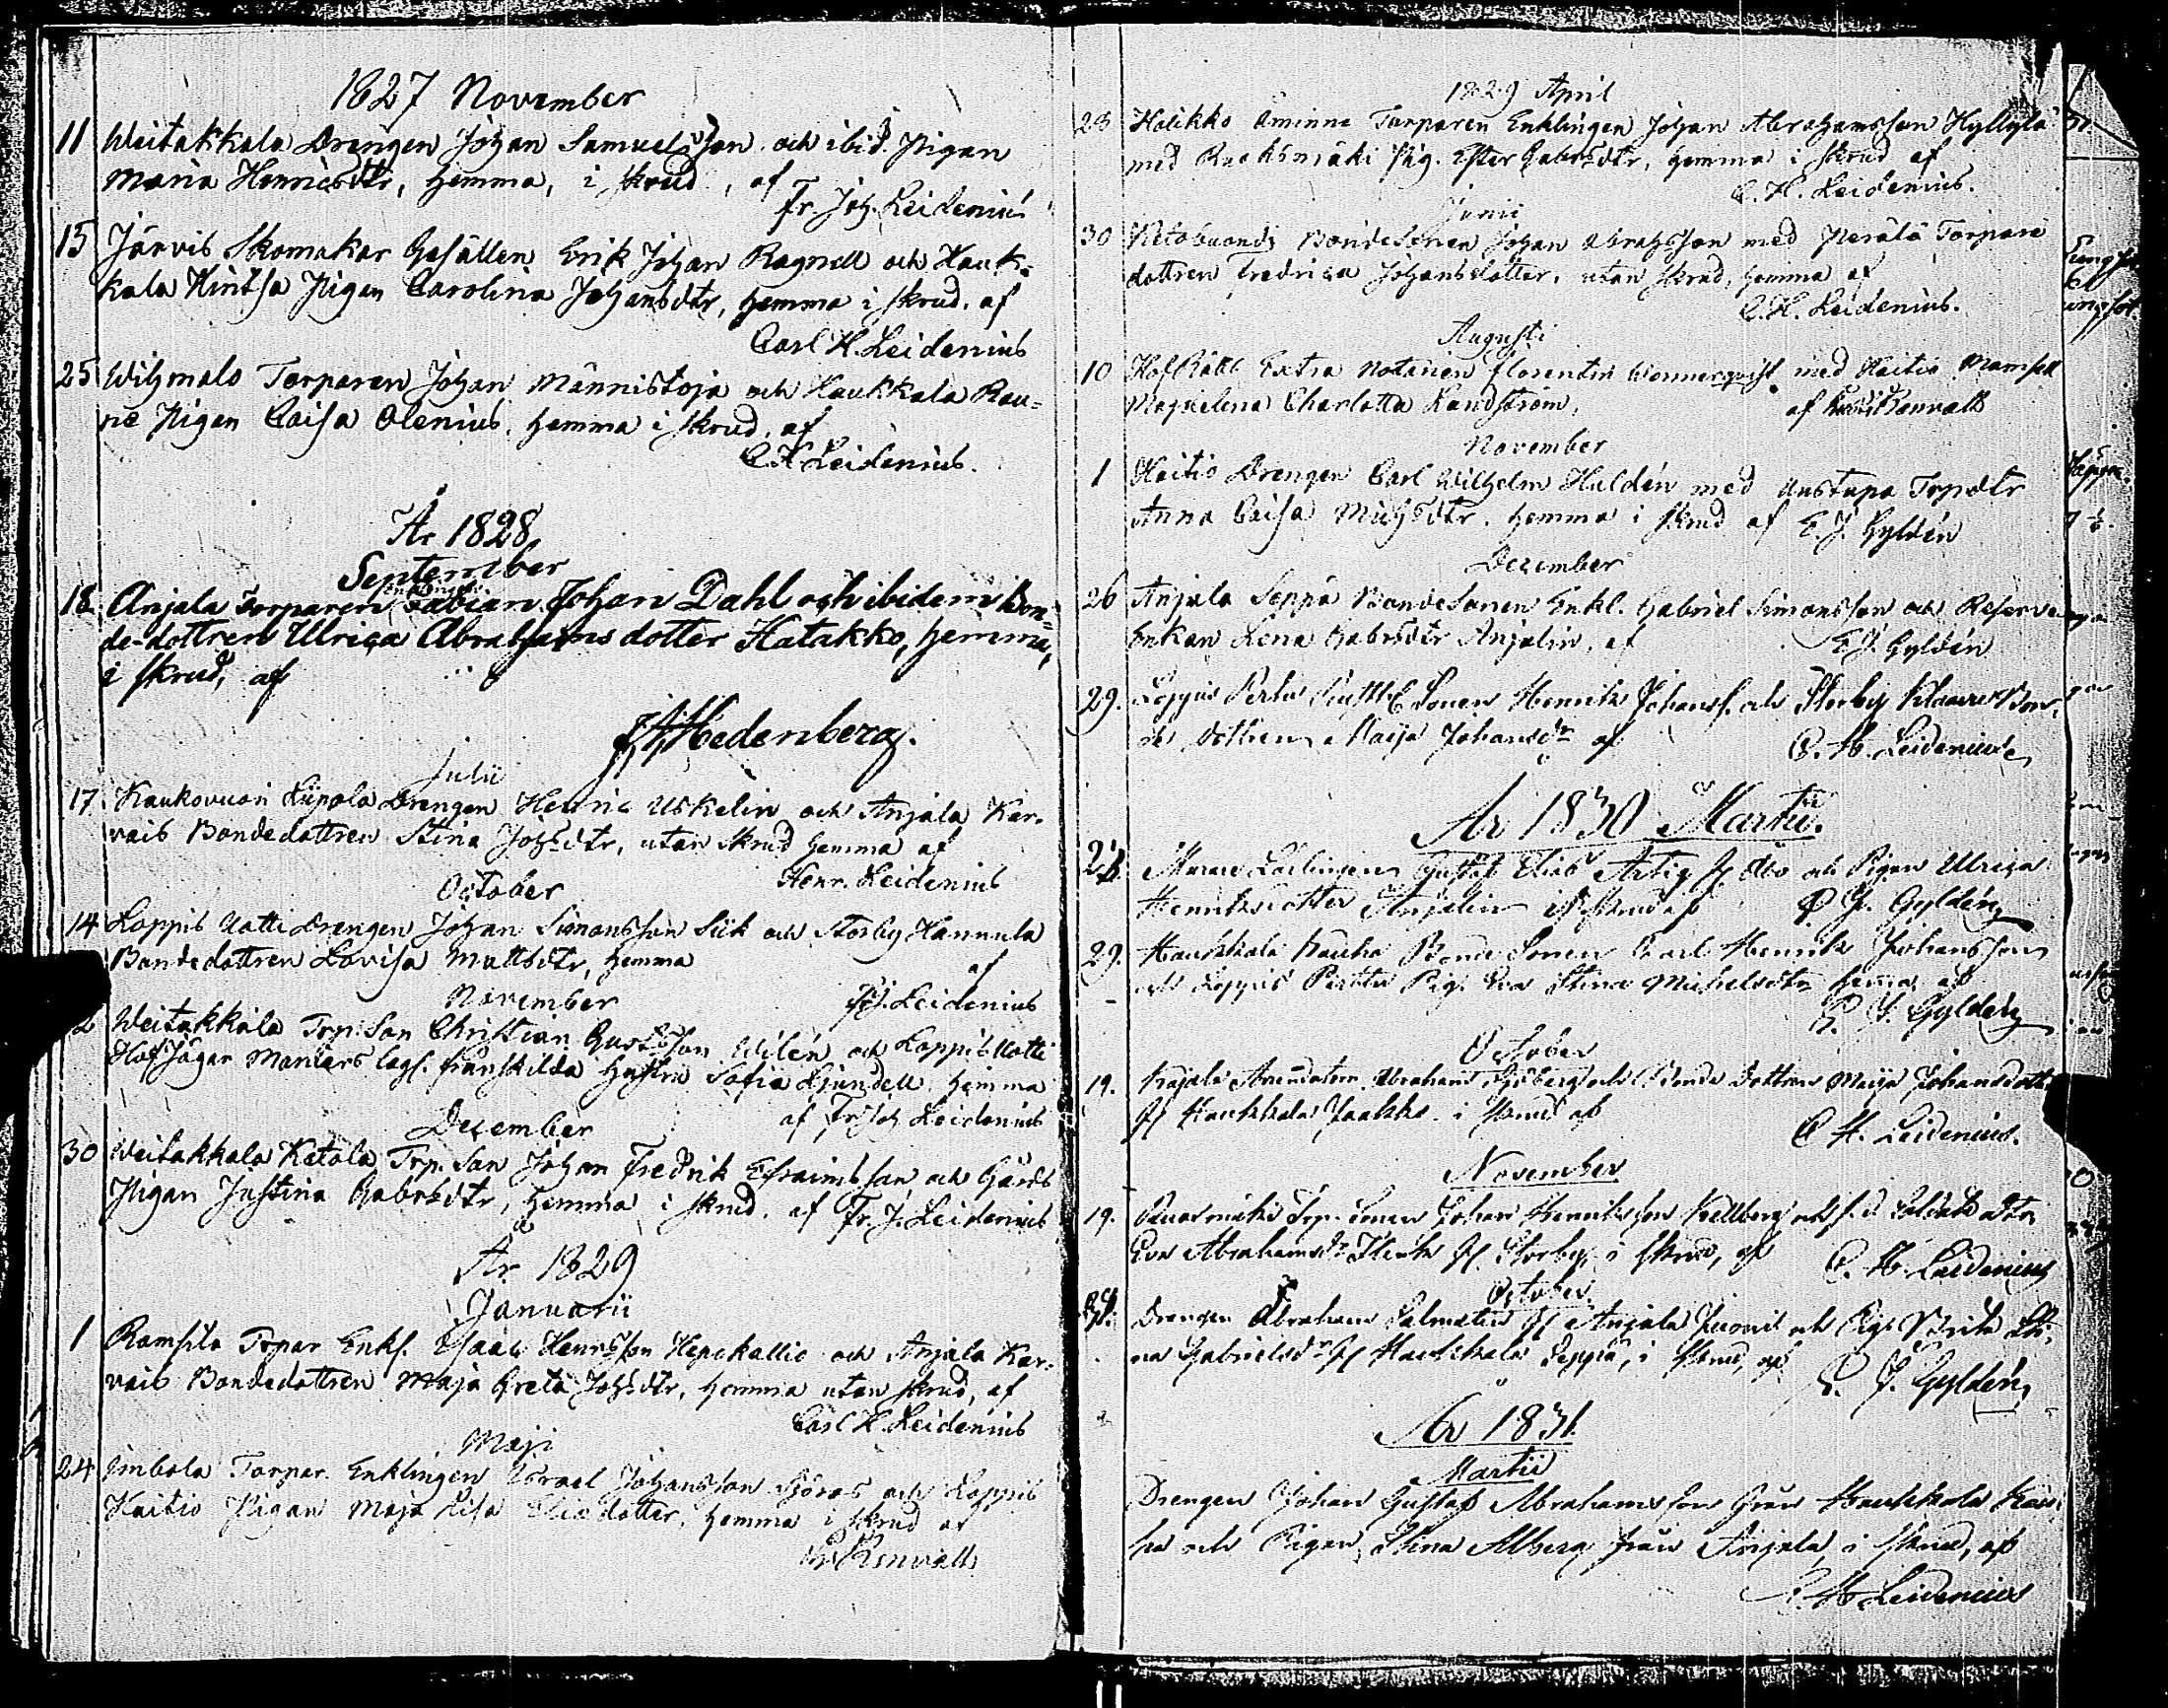 1827 November
11 Weitakkala Drengen Johan Samuelsson och ibid. Pigan
Maria Henricsdtr, hemma, i skrud, af
Fr. Joh. Leidenius
15 Järvis Skomakar Gesällen Erik Johan Ragnell och Hauk-
kala Hintsa Pigan Carolina Johansdtr, hemma i skrud, af
Carl H. Leidenius
25 Torparen Johan Männistoja och Haukkala Rau-
Pigan Caisa Olenius, hemma i skrud, af
C. H. Leidenius.
År 1828
September
18 Anjala Torparen Fabian Johan Dahl och ibidem Bon-
de-dottren Ulrica Abrahams dotter Hatakko, hemma,
i skrud, af
Hedenberg.
Julii
17. Kaukovuori Drengen Henric Uskelin och Anjala Kar-
vais Bondedottren Stina Johsdtr, utan skrud hemma af
Henr. Leidenius
October
14 Loppis Uotti Drengen Johan Simonsson Siik och Storby Hannula
Bondedottren Lovisa Mattsdtr, hemma
af
Leidenius
November
2 Weitakkala Trp. Son Christian Gustafsson Wilén och Loppis Uotti
Hof Jägar lagl. frånskilda hustru Sofia hemma
af Fr. Joh Leidenius
December
30 Weitakkala Katala Trp. Son Johan Fredrik Efraimsson och Gårds
Pigan Justina Gabrsdtr, hemma i skrud, af Fr. J. Leidenius
År 1829
Januarii
1 Torpar Enkl. Isaac Henrsson Hepokallio och Anjala Kar-
vais Bondedottren Maja Greta Johsdtr, hemma utan skrud, af
Carl H. Leidenius
Maji
24 Torpar. Enklingen Israel Johansson och Loppis
Haitio Pigan Maja Lisa Elias dotter, hemma i skrud af
1829 April
23 Halikko Åminne Torparen Enklingen Johan Abrahamsson Hyllylä
med Ruoksmäki Pig. Ester Gabrsdtr, hemma i skrud af
C. H. Leidenius.
Junii
30 Bondesonen Johan Abrahsson med Perälä Torpare
dottren Fredrica Johansdotter, utan skrud, hemma af
C. H. Leidenius.
Augusti
10 HofRätts Extra Notarien Florentin Wennerqvist med Haitio Mamsell
Magdelena Charlotta Randström, af
November
1 Haitio Drengen Carl Wilhelm Huldén med Anstupa Trpdtr
Anna Caisa Michsdtr. hemma i skrud af E. J. Gyldén
December
26 Anjala Seppä Bondesonen Enkl. Gabriel Simonsson och Reserve
Enkan Lena Gabrsdtr Anjelin, af
E. J. Gyldén
29. Loppis Perttu Sonen Henrik Johanss. och Storby Bon-
de dottren Maija Johansdr af
C. H. Leidenius
År 1830 Martii.
Gustaf Elias Artig fr. Åbo och Pigan Ulrica
Henriksdotter Anjelin i skrud af E. J. Gyldén
29. Haukkala Kauha Bonde Sonen Carl Henrik Johansson
och Loppis Perttu Pig. Eva Stina Michelsdtr hemma af
E. J. Gyldén
October
19. Arendatorn Abraham Sjöberg och Bonde Dottren Maija Johansdott.
fr. Haukkala Jaakko i skrud af
C. H. Leidenius.
November
19. Ruoksmäki Trp. Sonen Johan Henriksson Kellberg och f.d. Soldats dtr
Eva Abrahamsdr Flink fr. Storby i skrud, af C. H. Leidenius
October
Drengen Abraham Salmelin fr. Anjala Juonis och Pig. Brita Sti-
na Gabrielsdr fr. Haukkala Seppä, i skrud, af E. J. Gyldén
År 1831.
Martii
Drengen Johan Gustaf Abrahamsson från Haukkala Kau-
ha och Pigan Stina Alberg från Anjala, i skrud, af
C. H. Leidenius